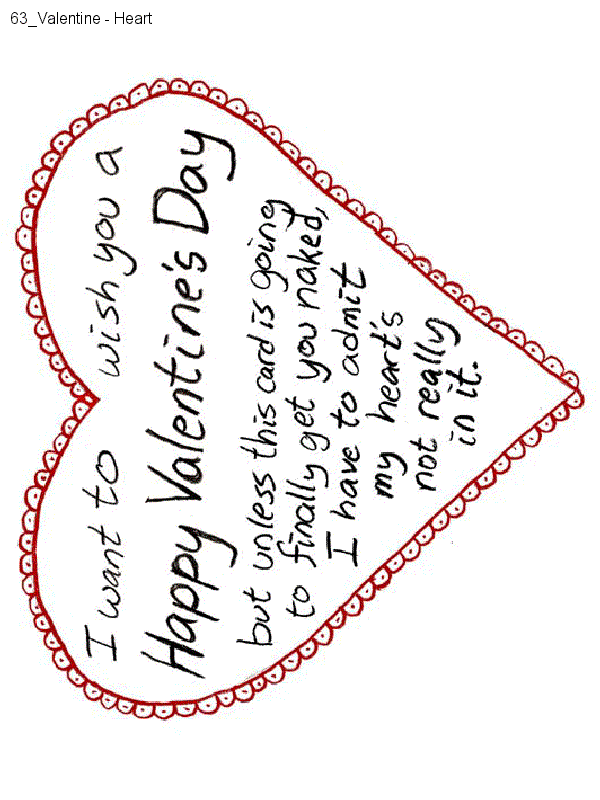 63_Valentine - Heart
I want to wish you a
Happy Valentine's Day
but unless this card is going
to finally get you naked,
I have to admit
my heart's
not really
in it.